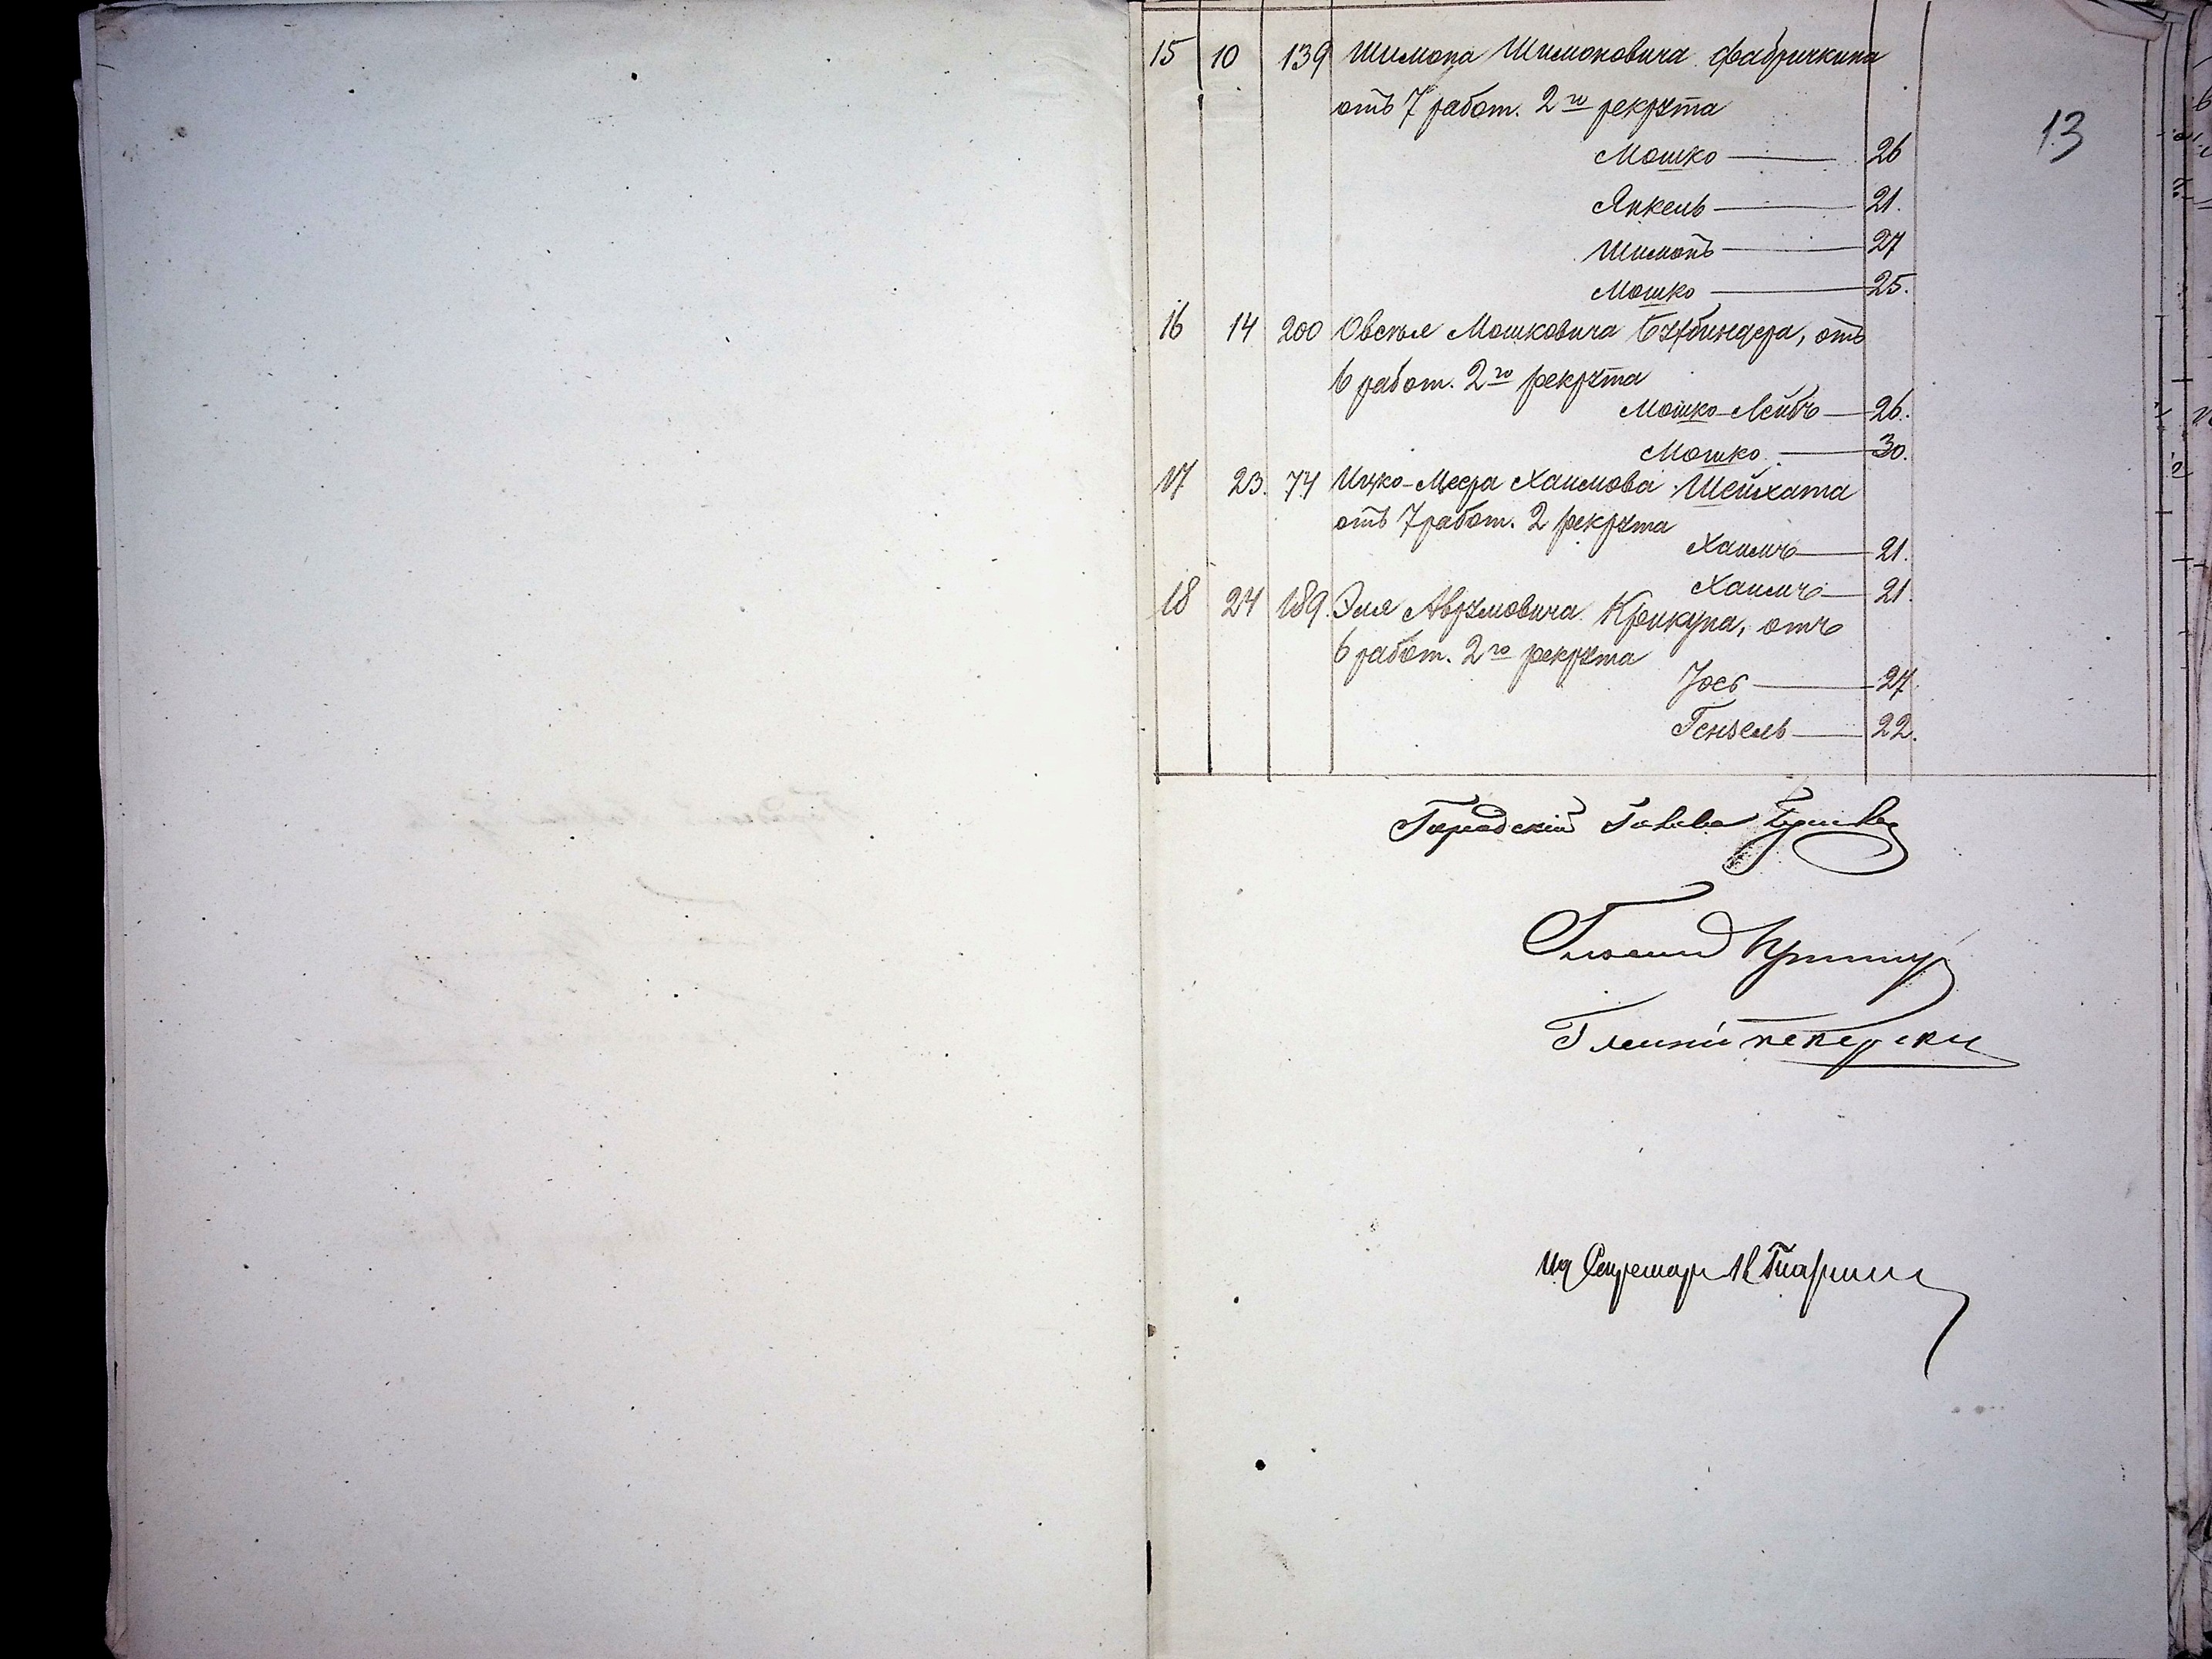 15 10 139 Шимона Шимоновича Фабричкина
отъ 7 работ. 2го рекрута
Мошко — 26
Янкель — 21.
Шимонъ — 27
Мошко — 25.
13
16 14 200 Овсѣя Мошковича Бухбиндера, отъ
6 работ. 2го рекрута
Мошко-Лейбъ — 26.
Мошко — 30.
17 23. 74 Ицко-Меера Хаимова Шейхата
отъ 7 работ. 2 рекрута
Хаимъ — 21.
Хаимъ — 21.
18 24 189. Эля Аврумовича Крикуна, отъ
6 работ. 2го рекрута
Іось — 27.
Гензель — 22.
Городскій Голова
Гласный
Гласный
Ид Секретаря